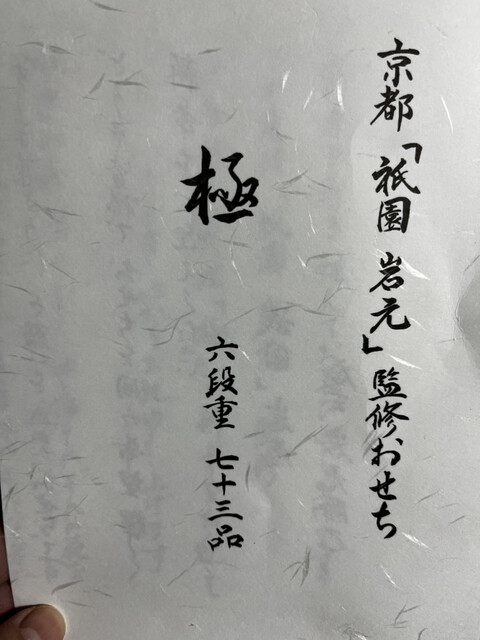 京都「祇園 岩元」監修おせち
極
六段重 七十三品